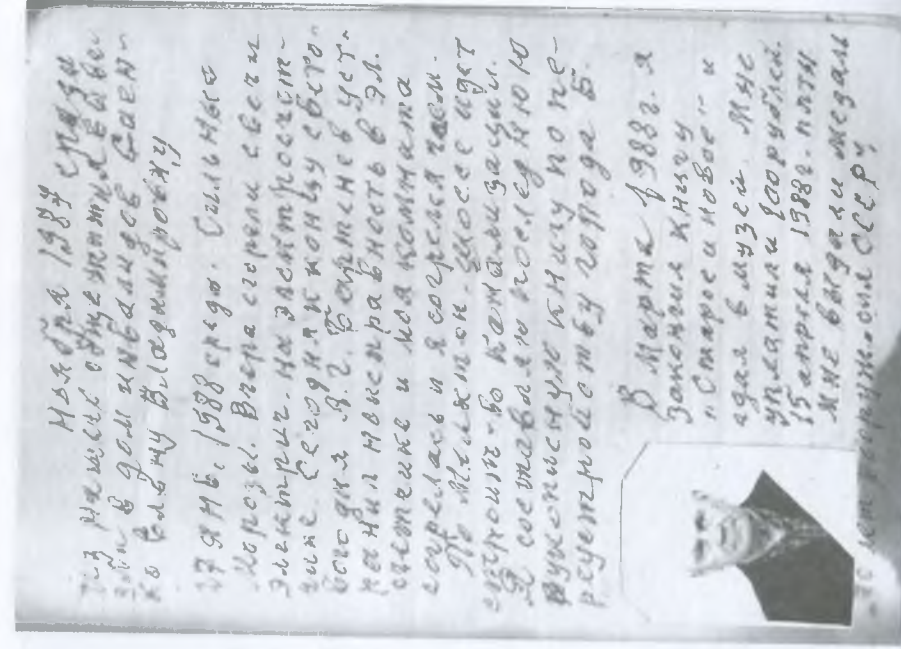 Ноября 1987 среда
из наших служентия Евге-
в дом инвалидов Саен-
ко Ольгу Владимировну
27 янв. 1988 среда. Сильные
Морозы. Вчера сгорели свечи
электрич. на электросчет-
чике. Сегодня к концу
сегодня Я. Г. Устне
неисправность в эл.
счетчике и моя комната
согрелась и я согрелся чаем.
По Млинской шоссе идет
строит-во канализации.
Я составляю последнюю
рукописную книгу по пе-
реустройству города Б.
В Марте 1988 г. я
закончил книгу
„Старое и новое" и
сдал в музей. Мне
уплатили 900 рублей.
15 апреля 1988 г. птн
Мне выдали медаль
„70 лет вооруж. сил СССР"